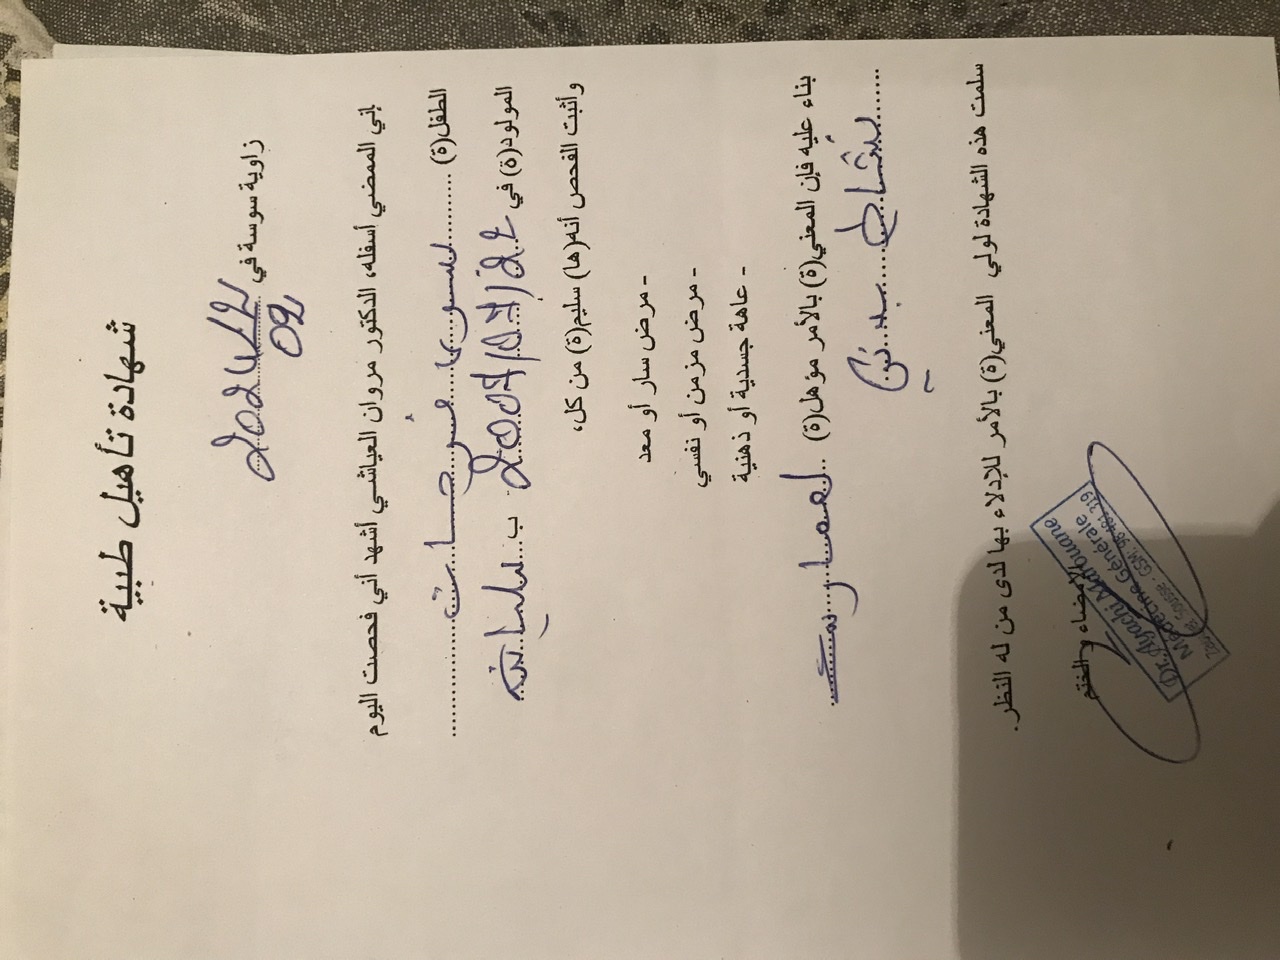 شهادة تأهيل طبية
زاوية سوسة في
إني الممضي أسفله، الدكتور مروان العياشي أشهد أني فحصت اليوم
الطفل(ة) ........ يسرى فرحات ........
المولود(ة) في 2007/07/22 ب
وأثبت الفحص أنه(ها) سليم(ة) من كل،
- مرض سار أو معد
- مرض مزمن أو نفسي
- عاهة جسدية أو ذهنية
بناء عليه فإن المعني(ة) بالأمر مؤهل(ة) .. لممارسة
نشاط بدني
سلمت هذه الشهادة لولي المعني(ة) بالأمر للإدلاء بها لدى من له النظر.
الإمضاء و الختم
Dr. Ayachi Marouane
Médecine Générale
Sousse - GSM: 98 491 219